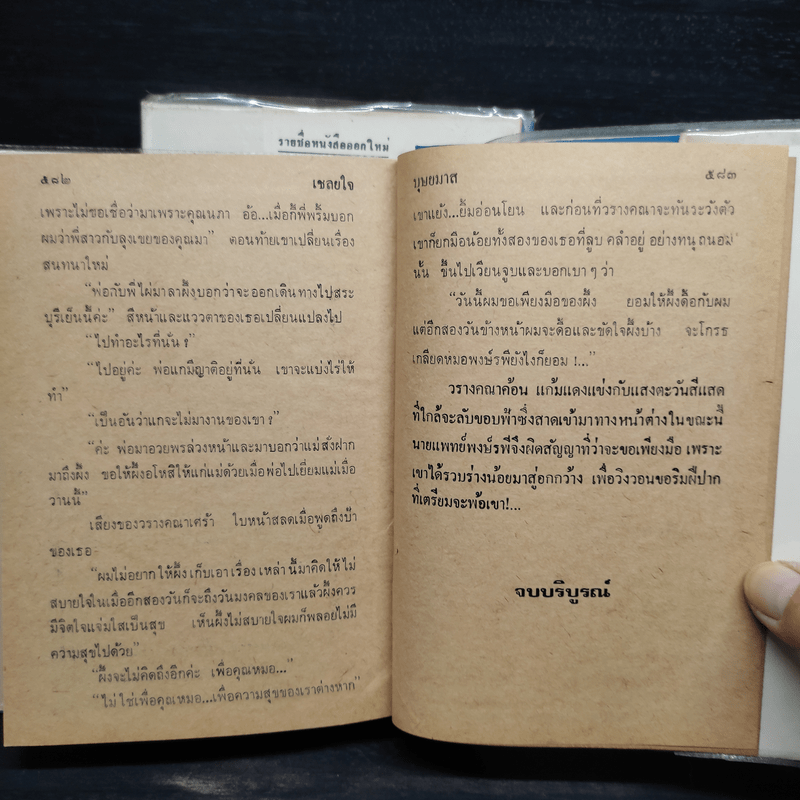 รายชื่อหนังสือออกใหม่
๕๘๒ เชลยใจ
เพราะไม่ขอเชื่อว่ามาเพราะคุณนภา อ้อ...เมื่อกี้พี่พริ้มบอก
ผมว่าพี่สาวกับลุงเขยของคุณมา” ตอนท้ายเขาเปลี่ยนเรื่อง
สนทนาใหม่
“พ่อกับพี่ไผ่มาลาผึ้งบอกว่าจะออกเดินทางไปสระ
บุรีเย็นนี้ค่ะ” สีหน้าและแววตาของเธอเปลี่ยนแปลงไป
“ไปทำอะไรที่นั่น ?”
“ไปอยู่ค่ะ พ่อแกมีญาติอยู่ที่นั่น เขาจะแบ่งไร่ให้
ทำ”
“เป็นอันว่าแกจะไม่มางานของเขา ?”
“ค่ะ พ่อมาอวยพรล่วงหน้าและมาบอกว่าแม่สั่งฝาก
มาถึงผึ้ง ขอให้ผึ้งอโหสิให้แก่แม่ด้วยเมื่อพ่อไปเยี่ยมแม่เมื่อ
วานนี้”
เสียงของวรางคณาเศร้า ใบหน้าสลดเมื่อพูดถึงป้า
ของเธอ
“ผมไม่อยากให้ผึ้งเก็บเอาเรื่องเหล่านี้มาคิดให้ไม่
สบายใจในเมื่ออีกสองวันก็จะถึงวันมงคลของเราแล้วผึ้งควร
มีจิตใจแจ่มใสเป็นสุข เห็นผึ้งไม่สบายใจผมก็พลอยไม่มี
ความสุขไปด้วย”
“ผึ้งจะไม่คิดถึงอีกค่ะ เพื่อคุณหมอ...”
“ไม่ใช่เพื่อคุณหมอ...เพื่อความสุขของเราต่างหาก”
บุษยมาส ๕๘๓
เขาแย้ง...ยิ้มอ่อนโยน และก่อนที่วรางคณาจะทันระวังตัว
เขาก็ยกมือน้อยทั้งสองของเธอที่ลูบ คลำอยู่ อย่างทนุถนอม
นั้น ขึ้นไปเวียนจูบและบอกเบา ๆ ว่า
“วันนี้ผมขอเพียงมือของผึ้ง ยอมให้ผึ้งดื้อกับผม
แต่อีกสองวันข้างหน้าผมจะดื้อและขัดใจผึ้งบ้าง จะโกรธ
เกลียดหมอพงษ์รพียังไงก็ยอม !...”
วรางคณาค้อน แก้มแดงแข่งกับแสงตะวันสีแสด
ที่ใกล้จะลับขอบฟ้าซึ่งสาดเข้ามาทางหน้าต่างในขณะนี้
นายแพทย์พงษ์รพีจึงผิดสัญญาที่ว่าจะขอเพียงมือ เพราะ
เขาได้รวบร่างน้อยมาสู่อกกว้าง เพื่อวิงวอนขอริมฝีปาก
ที่เตรียมจะพ้อเขา!...
จบบริบูรณ์